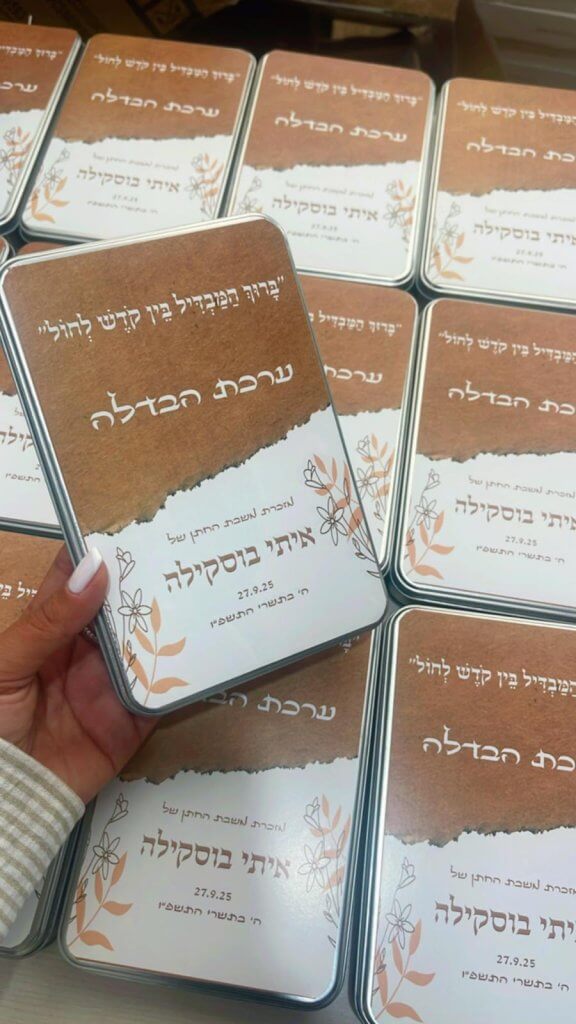 "בָּרוּךְ הַמַּבְדִּיל בֵּין קֹדֶשׁ לְחוֹל"
ערכת הבדלה
מזכרת משבת החתן של
איתי בוסקילה
27.9.25
ה' בתשרי התשפ"ו